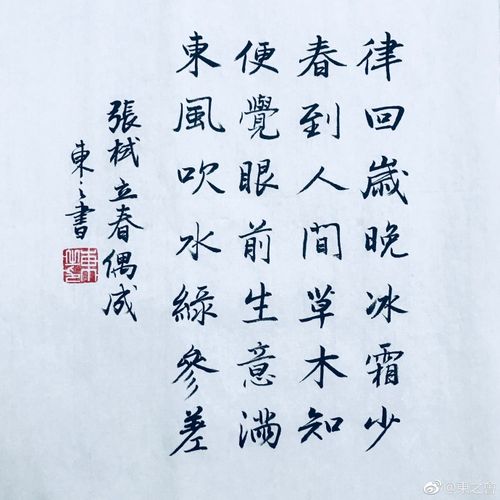 律回歲晚冰霜少
春到人間草木知
便覺眼前生意滿
東風吹水綠參差
張栻立春偶成
東之書